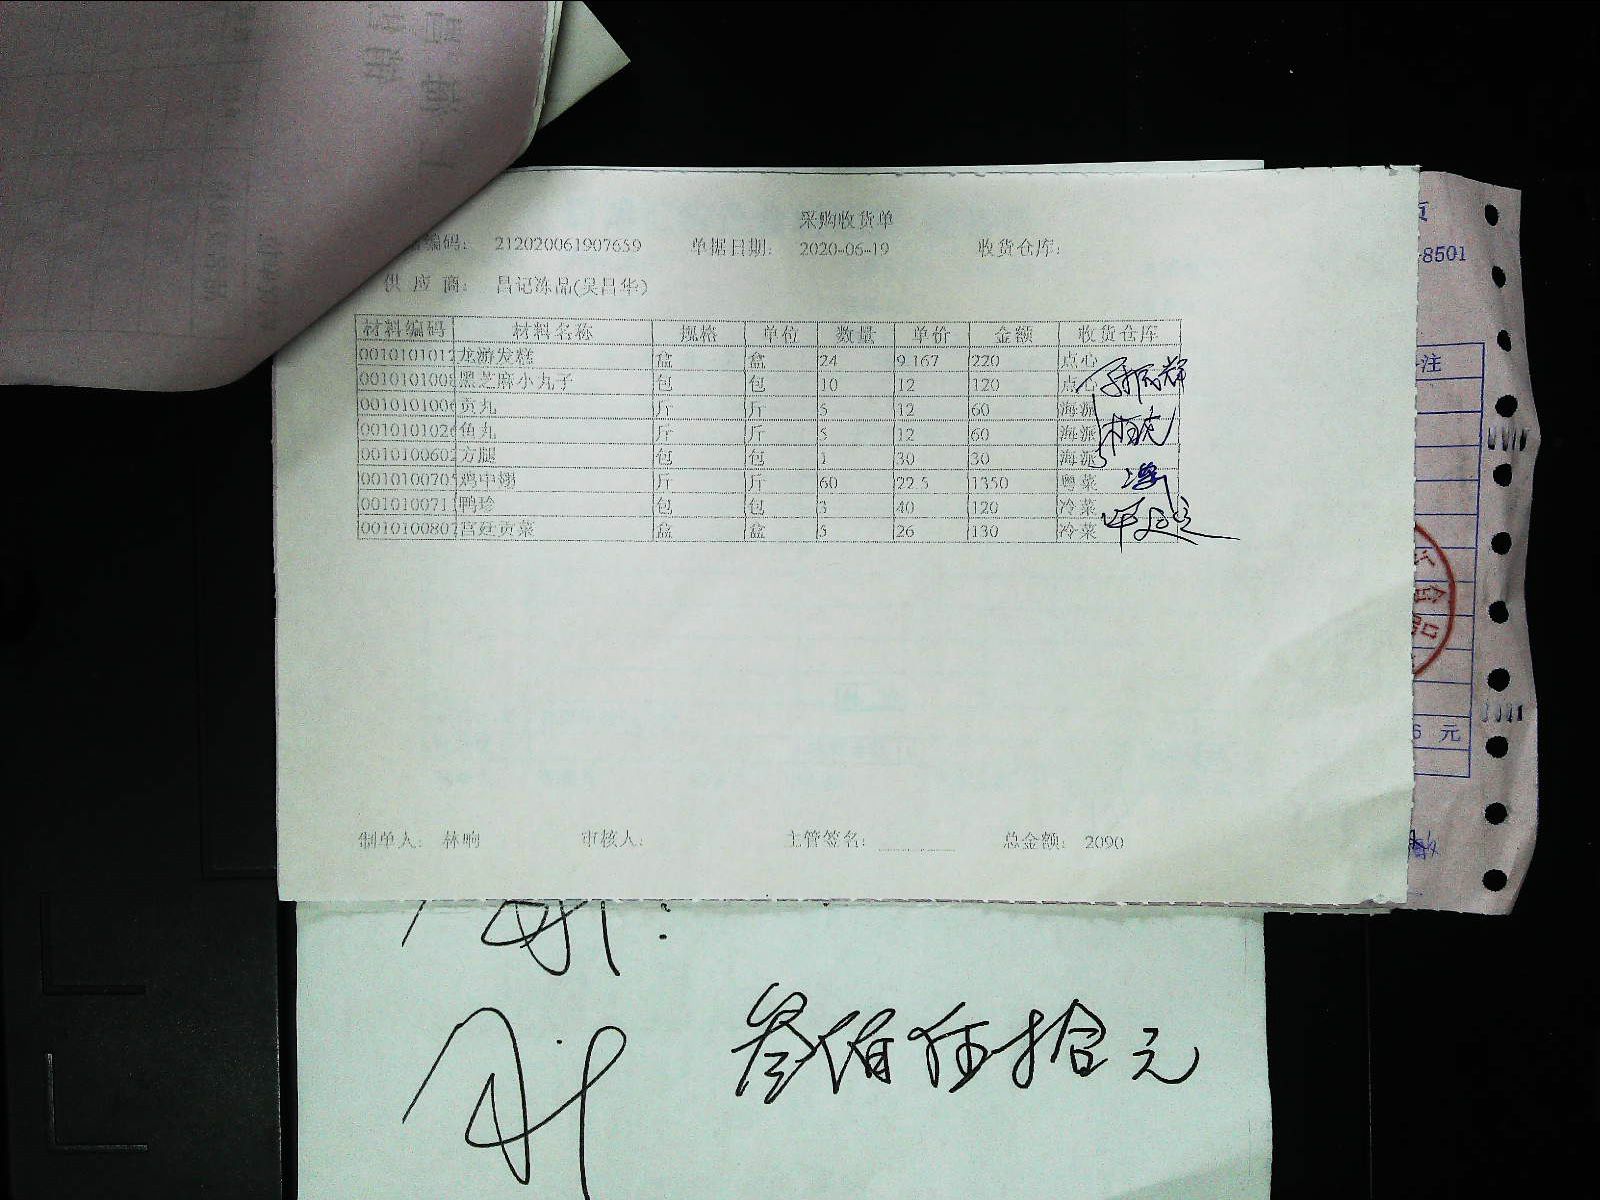 采购收货单
编码: 212020061907659 单据日期: 2020-06-19 收货仓库:
供应商: 昌记冻品(吴昌华)
材料编码 材料名称 规格 单位 数量 单价 金额 收货仓库
0010101012 龙游发糕 盒 盒 24 9.167 220 点心
0010101008 黑芝麻小丸子 包 包 10 12 120 点心
0010101006 贡丸 斤 斤 5 12 60 海派
0010101026 鱼丸 斤 斤 5 12 60 海派
0010100602 方腿 包 包 1 30 30 海派
0010100705 鸡中翅 斤 斤 60 22.5 1350 粤菜
001010071 鸭珍 包 包 3 40 120 冷菜
0010100807 宫廷贡菜 盒 盒 5 26 130 冷菜
制单人: 林响 审核人: 主管签名: 总金额: 2090
8501
注
6 元
叁佰伍拾元